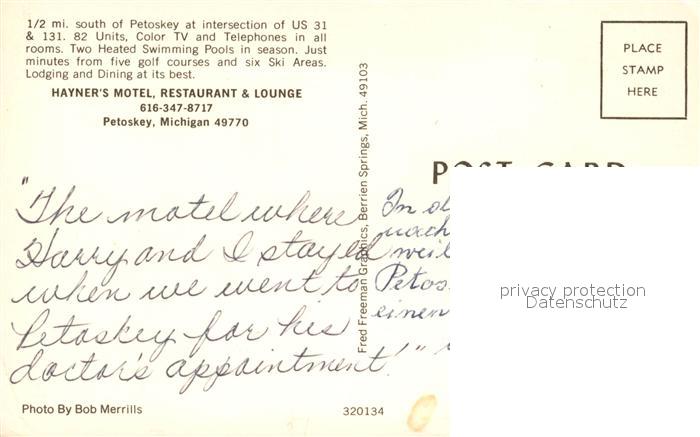 1/2 mi. south of Petoskey at intersection of US 31
& 131. 82 Units, Color TV and Telephones in all
rooms. Two Heated Swimming Pools in season. Just
minutes from five golf courses and six Ski Areas.
Lodging and Dining at its best.
HAYNER'S MOTEL, RESTAURANT & LOUNGE
616-347-8717
Petoskey, Michigan 49770
PLACE
STAMP
HERE
Fred Freeman Graphics, Berrien Springs, Mich. 49103
POST CARD
"The motel where
Harry and I stayed
when we went to
Petoskey for his
doctor's appointment!"
In
weil
Petos
einen
privacy protection
Datenschutz
Photo By Bob Merrills
320134